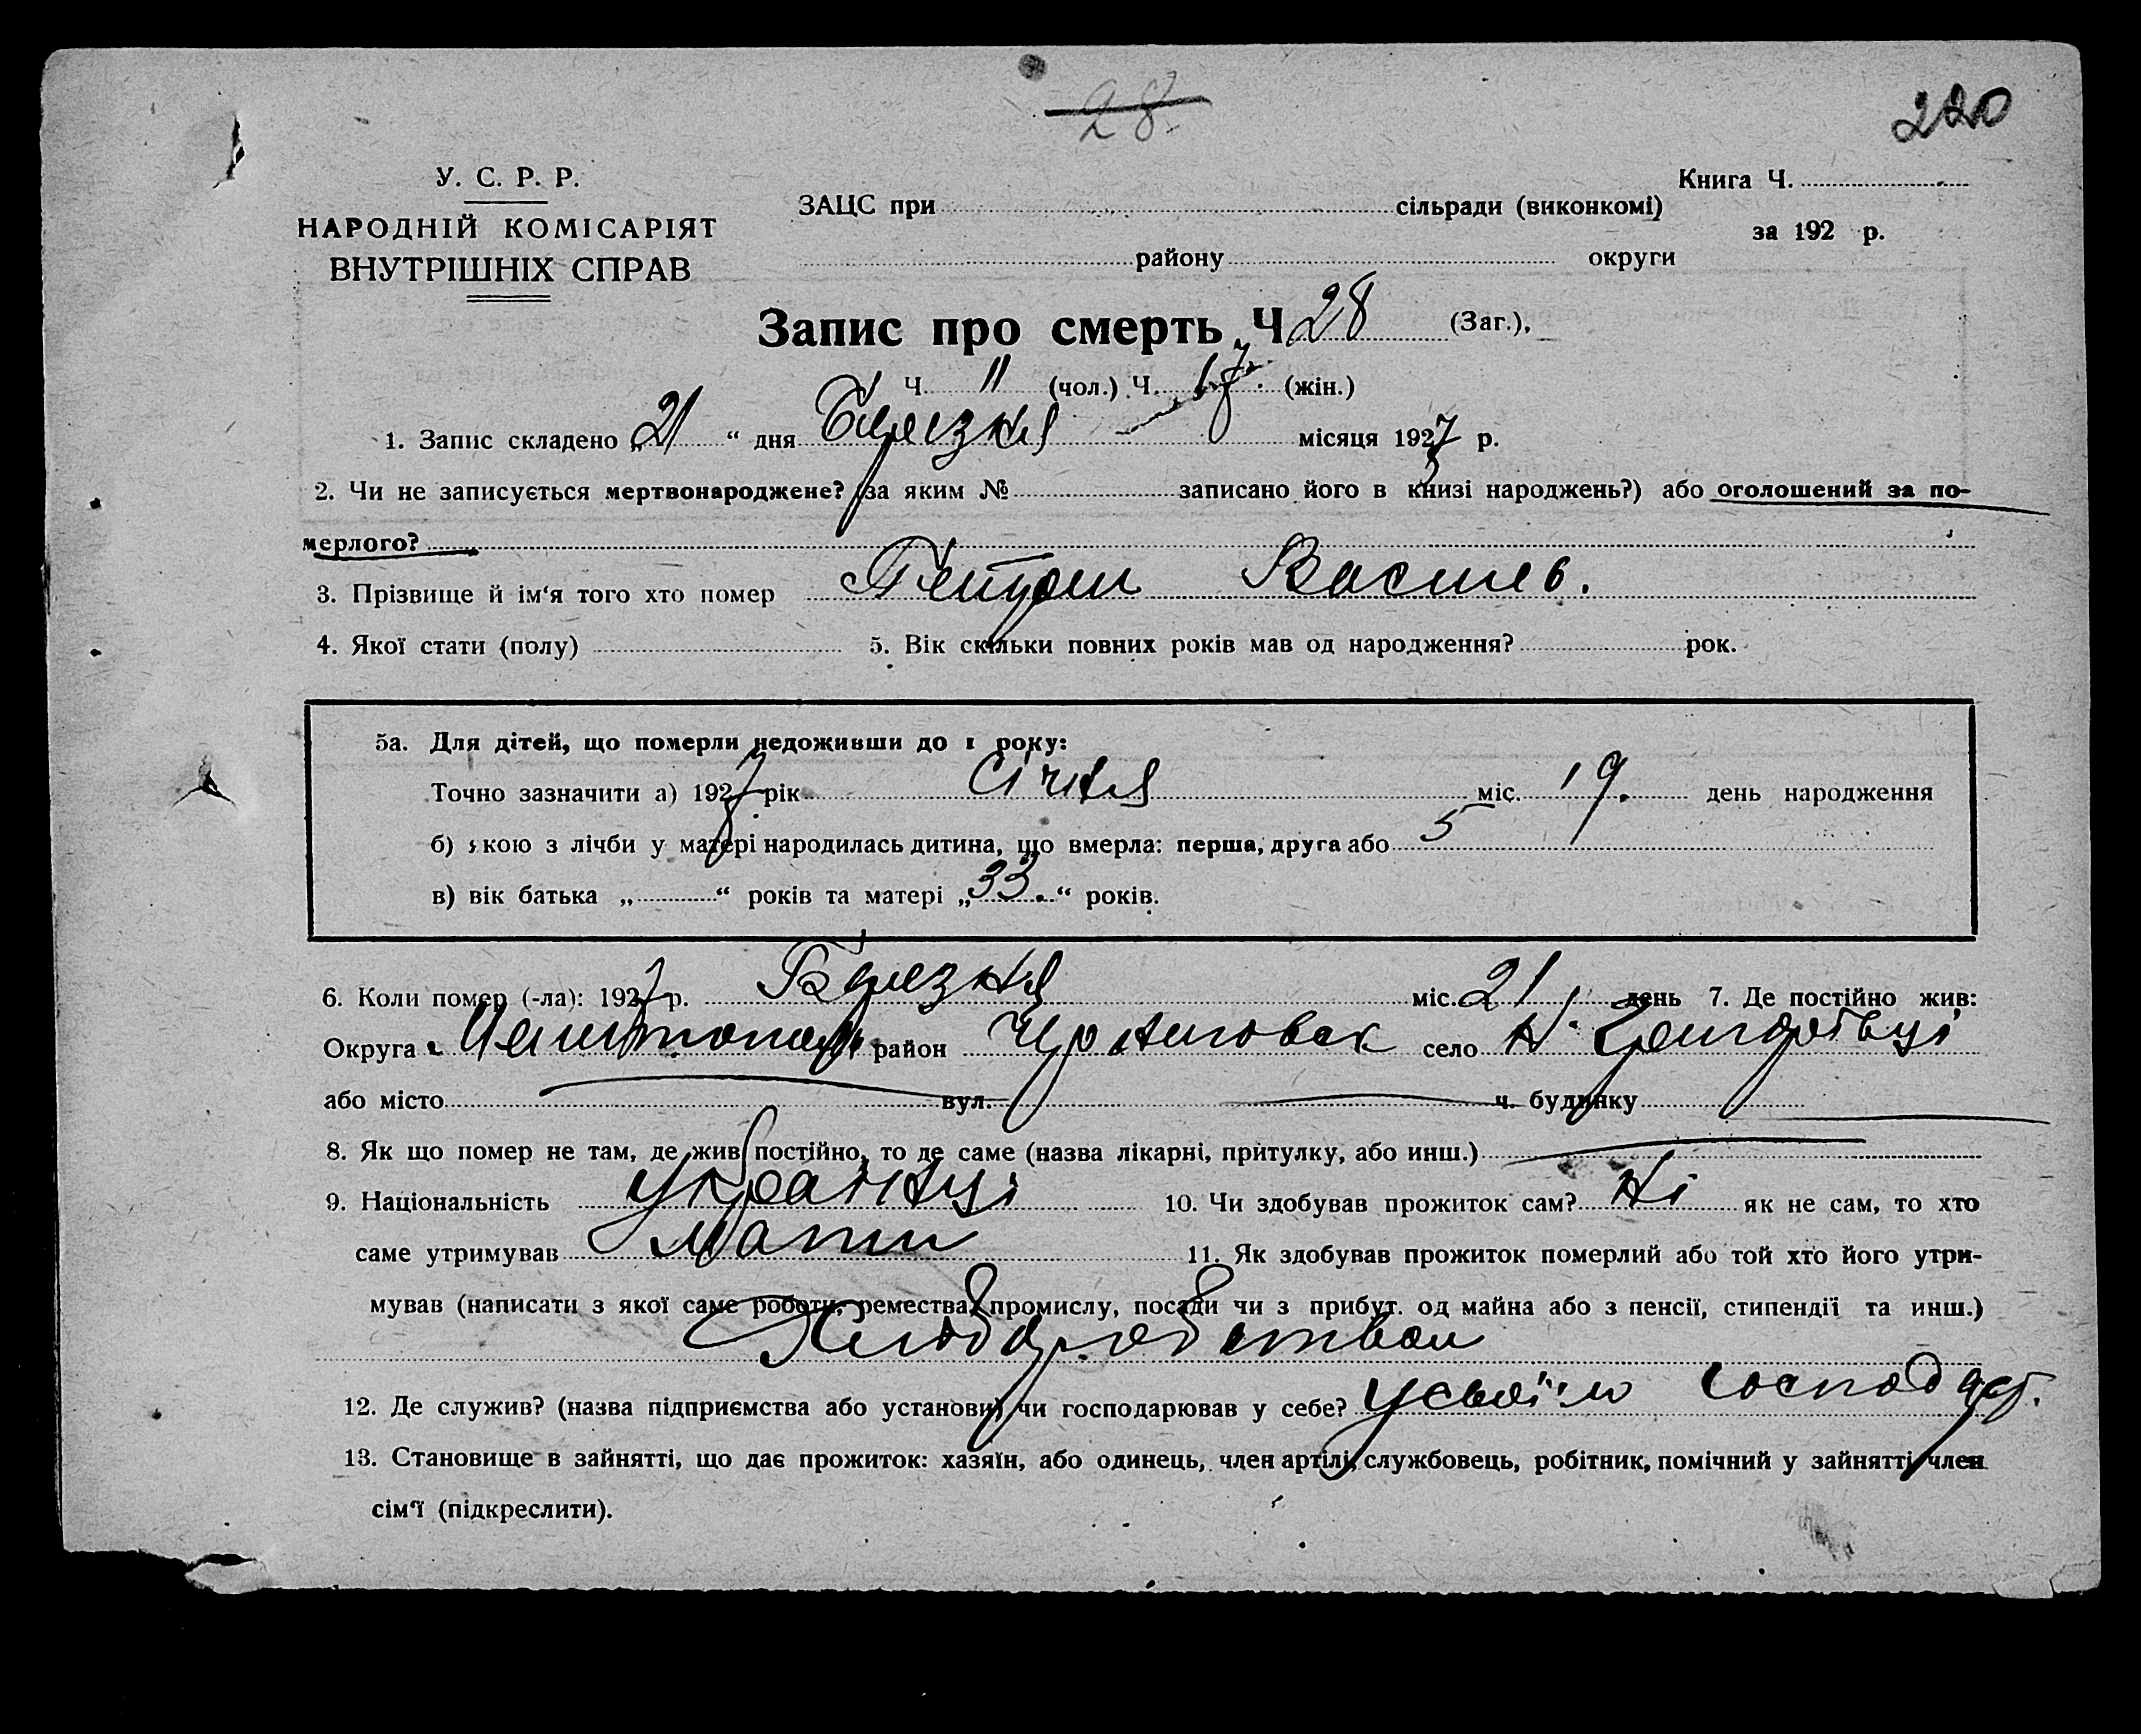 28.
220
У. С. Р. Р.
НАРОДНІЙ КОМІСАРІЯТ
ВНУТРІШНІХ СПРАВ
ЗАЦС при сільради (виконкомі)
району округи
Книга Ч.
за 192 р.
Запис про смерть Ч 28 (Заг.),
Ч. 11 (чол.) Ч. 17. (жін.)
1. Запис складено „ 21 “ дня Березня місяця 1927 р.
2. Чи не записується мертвонароджене? (за яким № записано його в книзі народжень?) або оголошений за по-
мерлого?
3. Прізвище й ім‘я того хто помер Василь.
4. Якої стати (полу) 5. Вік скільки повних років мав од народження? рок.
5а. Для дітей, що померли недоживши до 1 року:
Точно зазначити а) 1927 рік Січня міс. 19. день народження
б) якою з лічби у матері народилась дитина, що вмерла: перша, друга або 5
в) вік батька „ “ років та матері „ 33. “ років.
6. Коли помер (-ла): 1927 р. Березня міс. 21 день 7. Де постійно жив:
Округа район село
або місто вул. ч. будинку
8. Як що помер не там, де жив постійно, то де саме (назва лікарні, притулку, або инш.)
9. Національність Українці 10. Чи здобував прожиток сам? Ні як не сам, то хто
саме утримував Мати 11. Як здобував прожиток померлий або той хто його утри-
мував (написати з якої саме роботи, ремества, промислу, посади чи з прибут. од майна або з пенсії, стипендії та инш.)
Хліборобством
12. Де служив? (назва підприємства або установи) чи господарював у себе? усвоїм господар.
13. Становище в зайнятті, що дає прожиток: хазяїн, або одинець, член артілі, службовець, робітник, помічний у зайнятті член
сім‘ї (підкреслити).